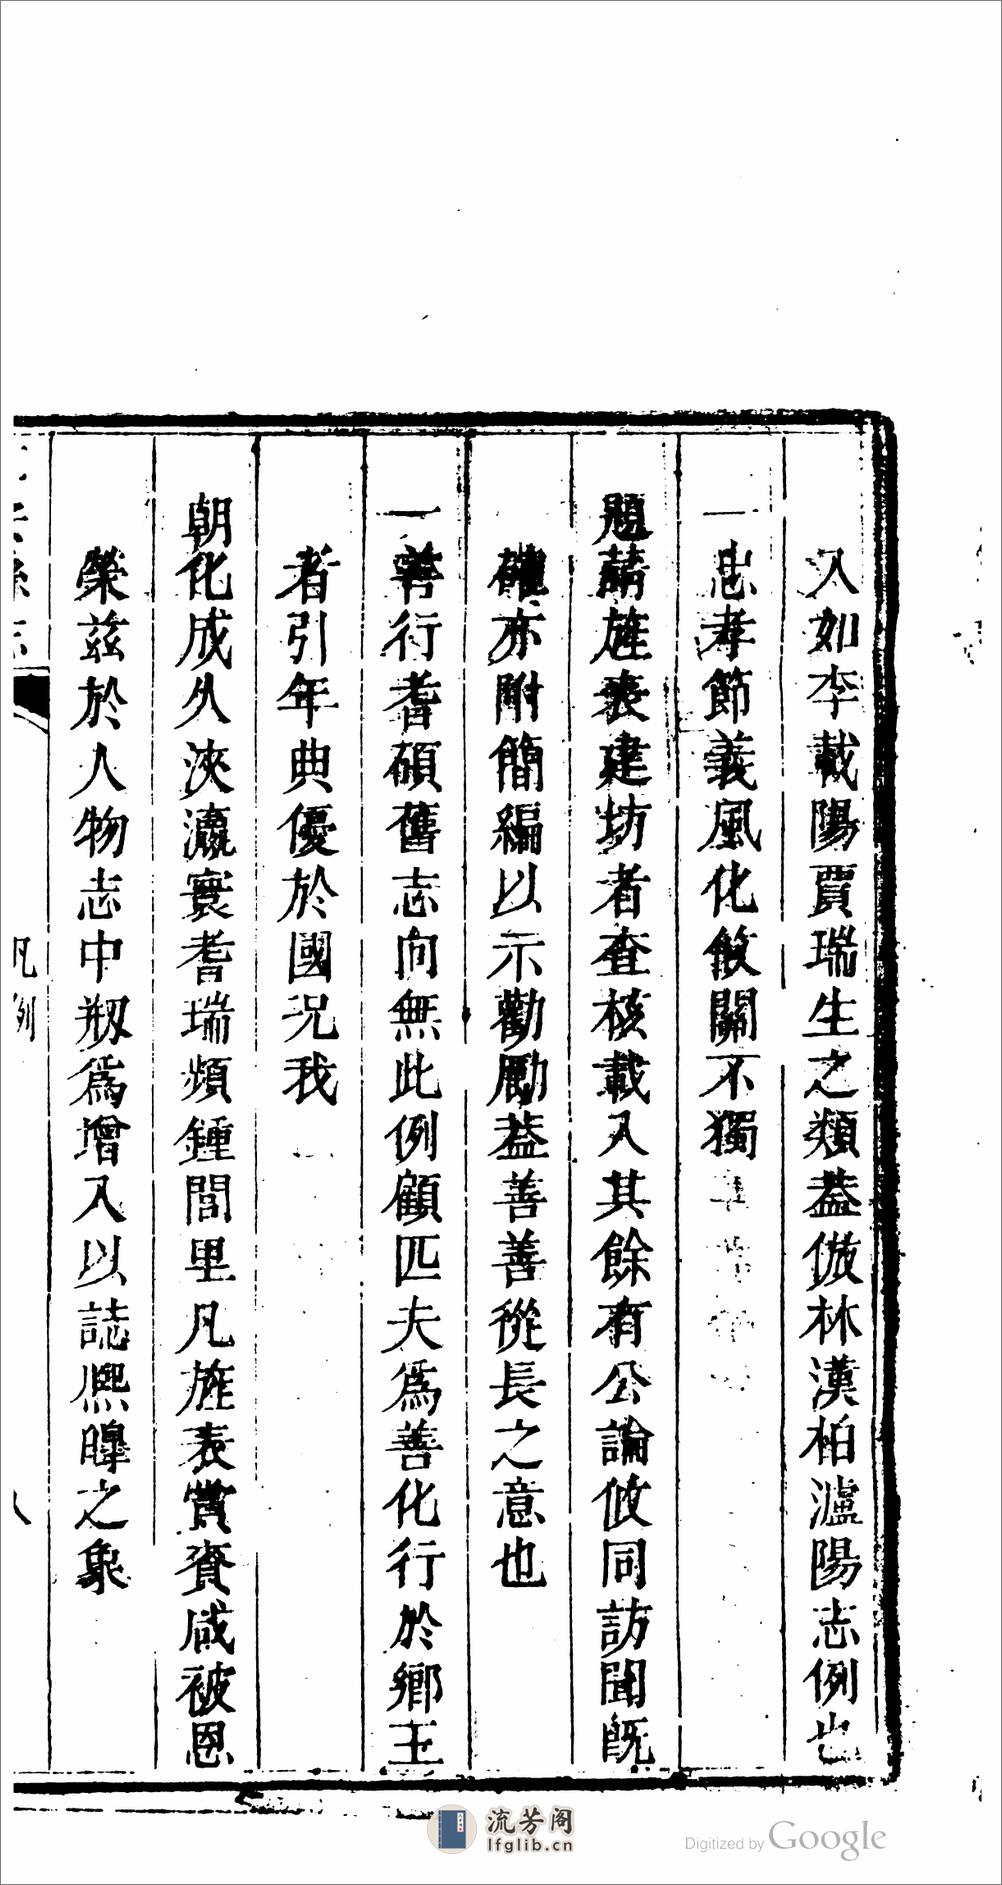 入如李載陽賈瑞生之類葢倣林漢柏瀘陽志例也
一忠孝節義風化攸關不獨
題請旌表建坊者查核載入其餘有公論攸同訪聞既
確亦附簡編以示勸勵葢善善從長之意也
一善行耆碩舊志向無此例顧匹夫爲善化行於鄉王
者引年典優於國况我
朝化成久浹瀛寰耆瑞頻鍾閭里凡旌表賞賚咸被恩
榮茲於人物志中剏爲增入以誌熈皡之象
凡例
八
流芳阁
lfglib.cn
Digitized by Google